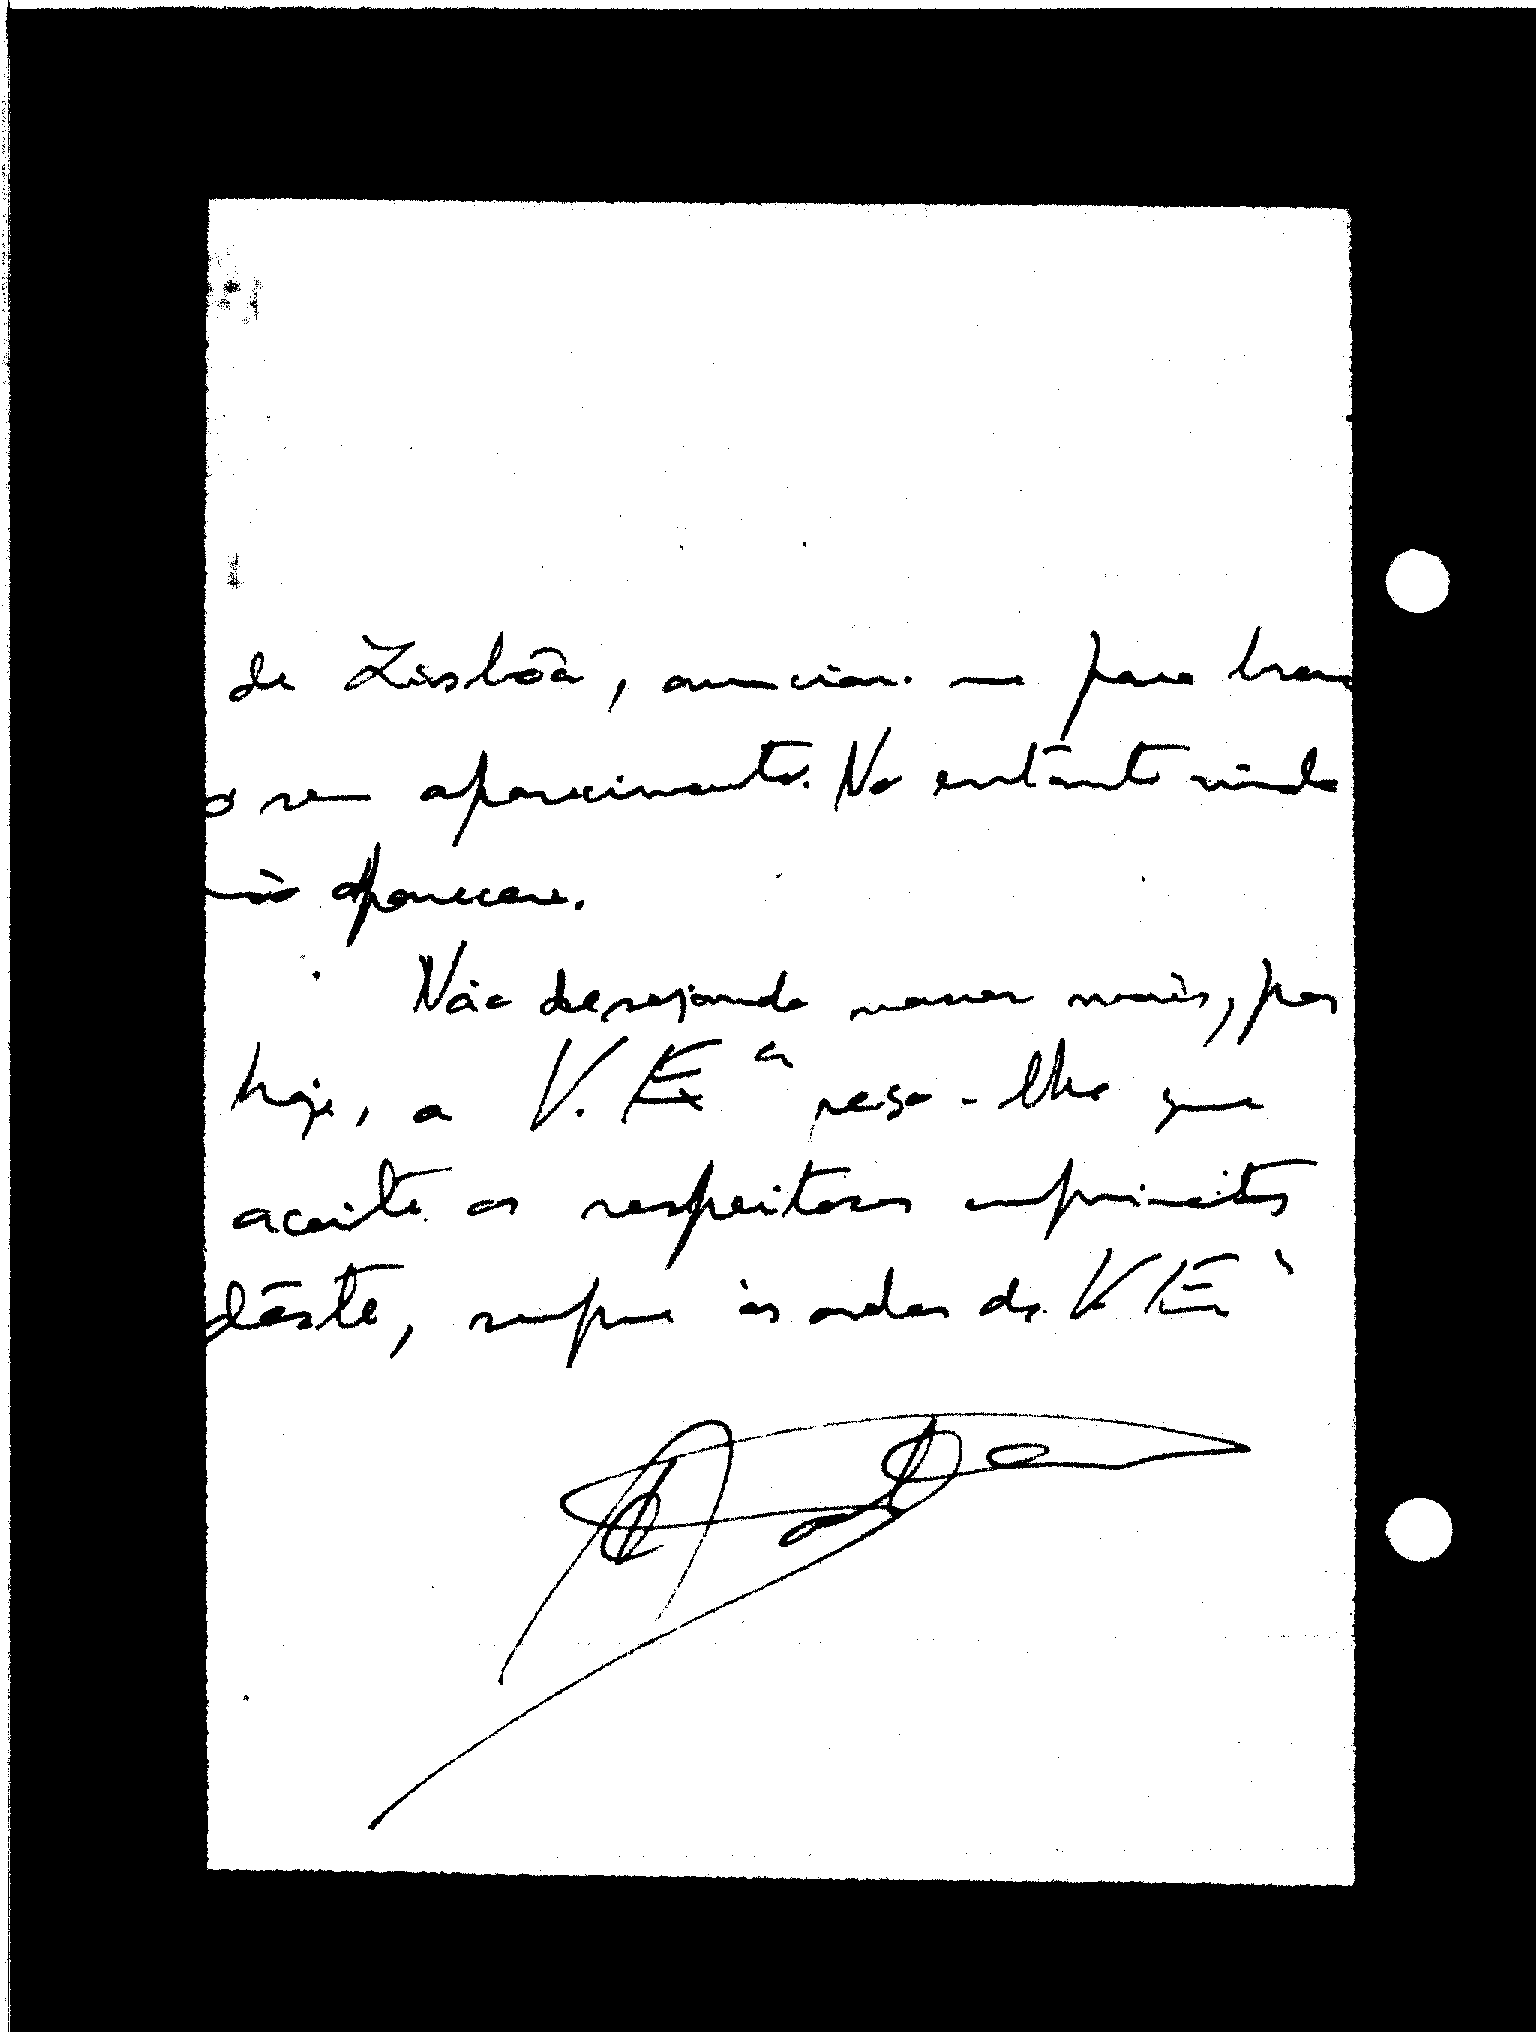 de Lisbôa, anunciar-me para breve
o seu aparecimento. No entanto ainda
não apareceu.
Não desejando massar mais, por
hoje, a V. Exª peço-lhe que
aceite os respeitosos cumprimentos
dêste, sempre às ordens de V. Ex